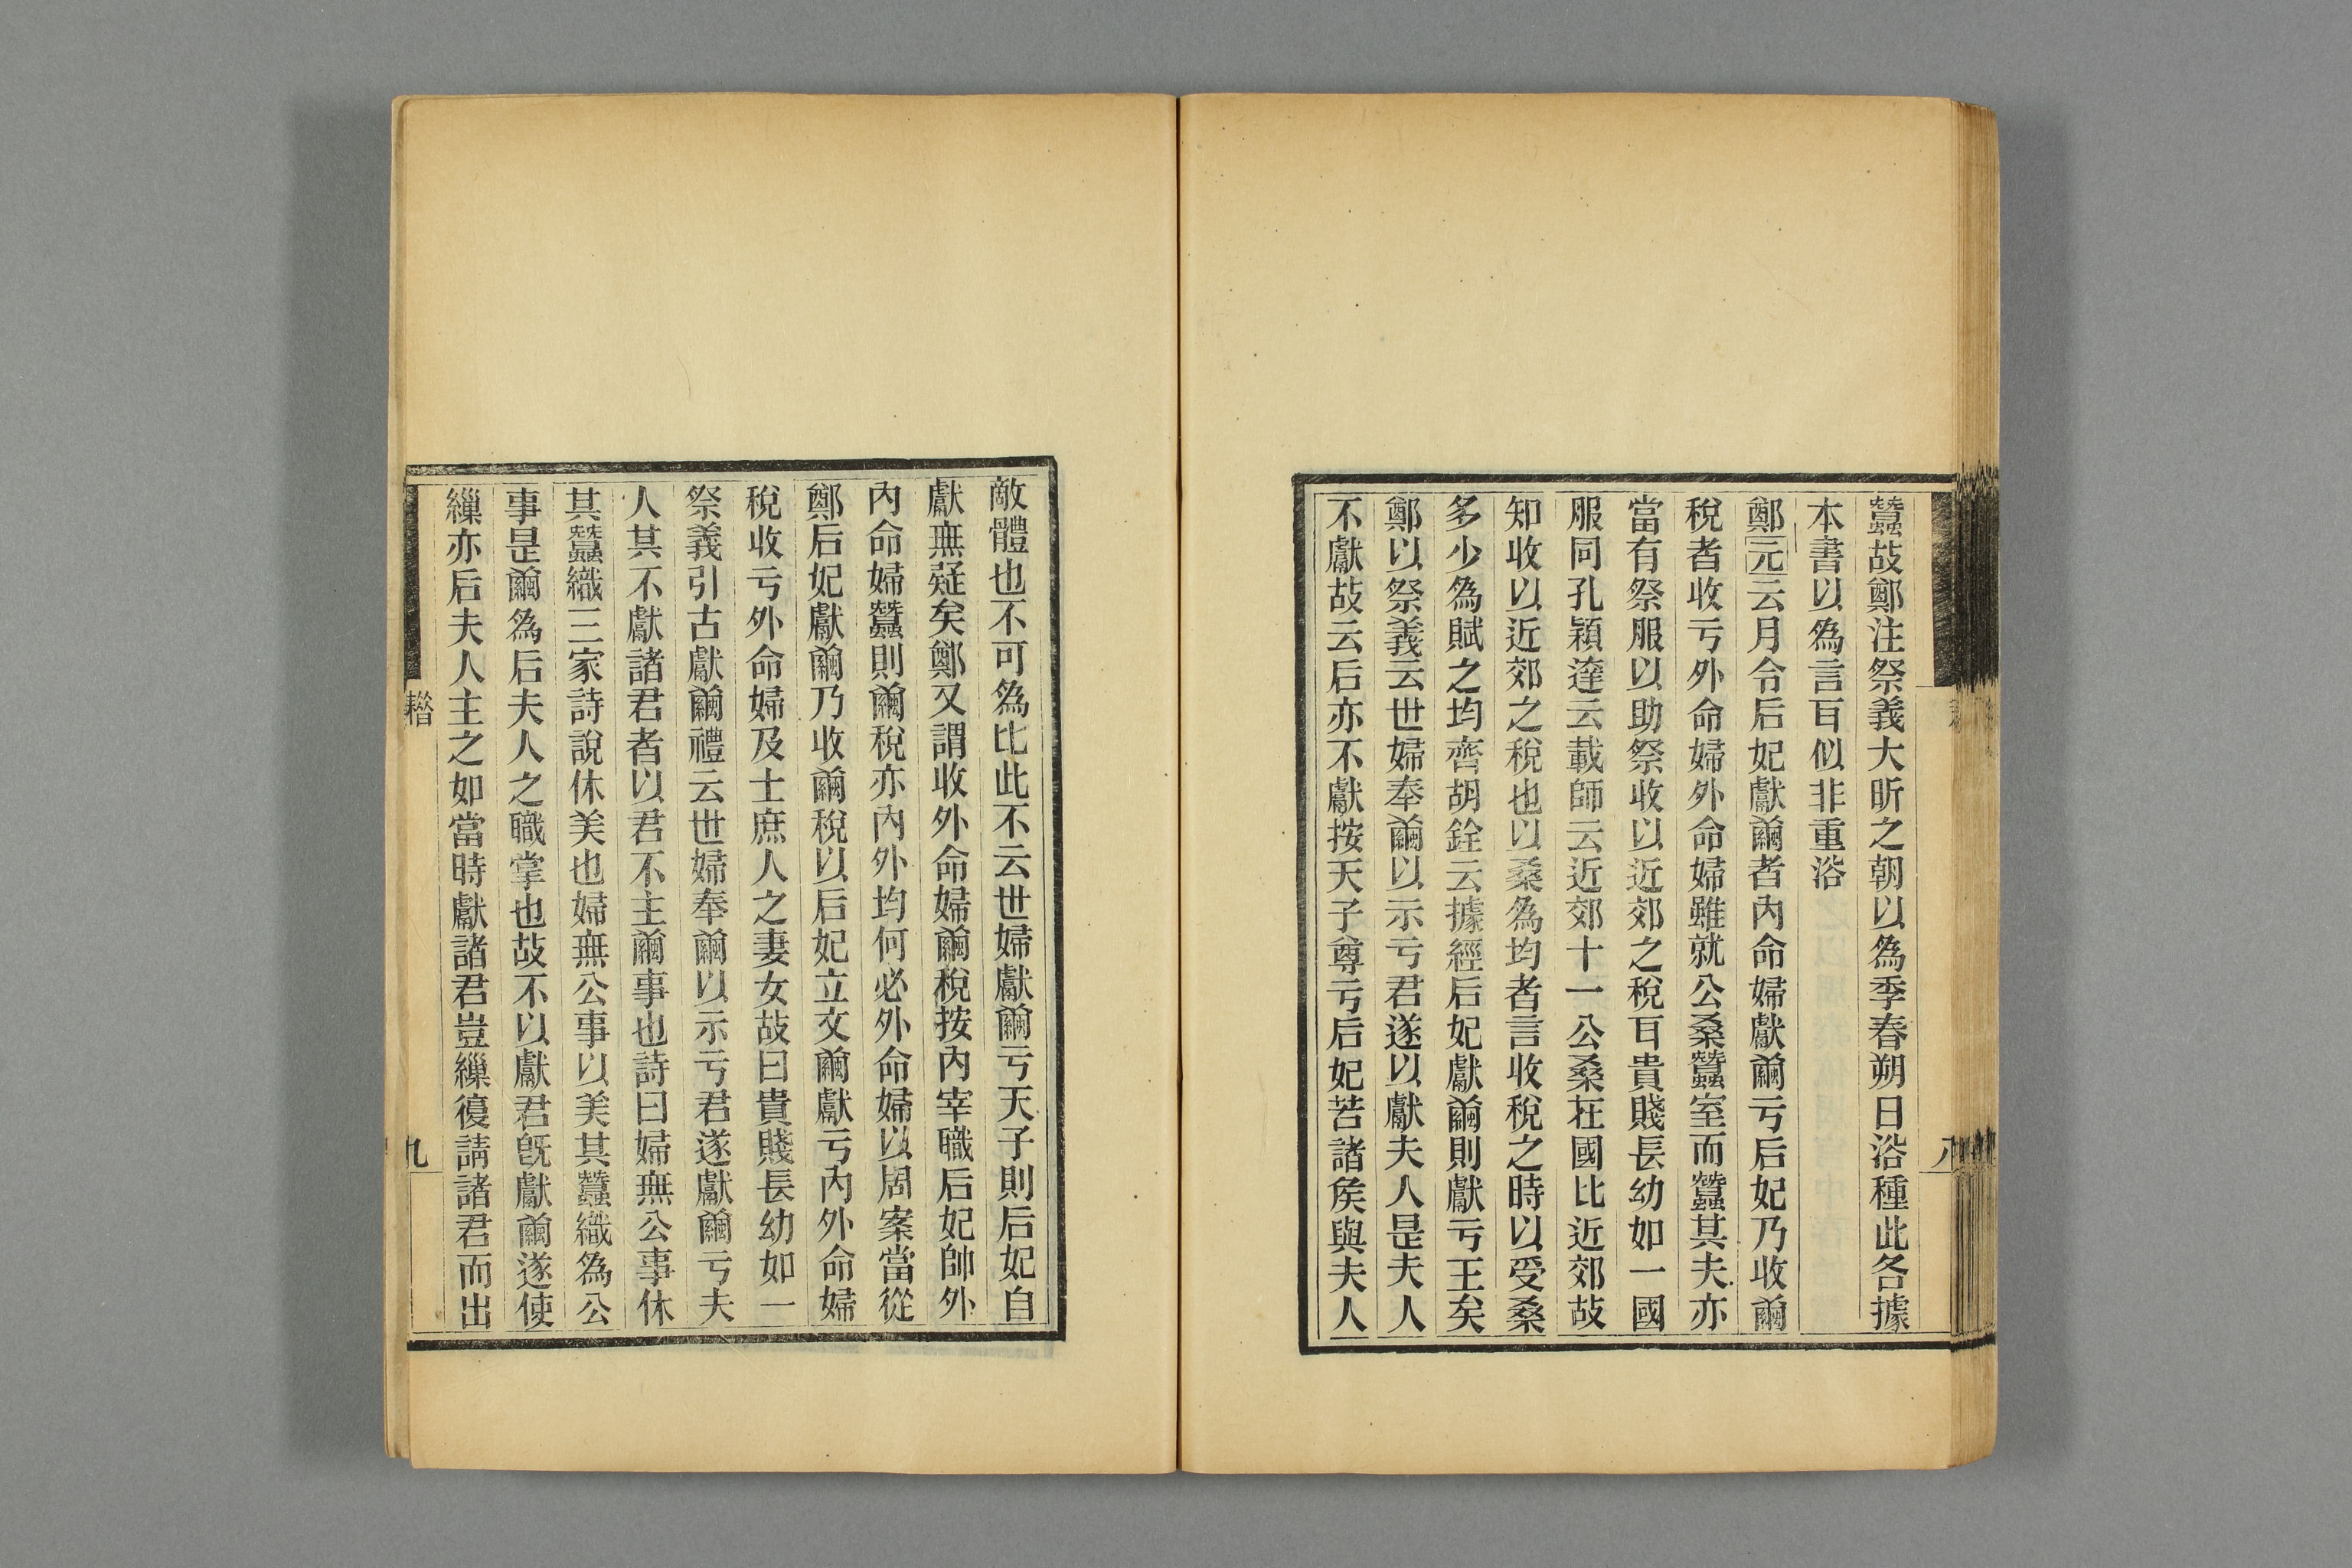 蠶故鄭注祭義大昕之朝以為季春朔日浴種此各據
本書以為言百似非重浴
鄭元云月令后妃獻繭者內命婦獻繭亏后妃乃收繭
稅者收亏外命婦外命婦雖就公桑蠶室而蠶其夫亦
當有祭服以助祭收以近郊之稅百貴賤長幼如一國
服同孔穎達云載師云近郊十一公桑在國比近郊故
知收以近郊之稅也以桑為均者言收稅之時以受桑
多少為賦之均齊胡銓云據經后妃獻繭則獻亏王矣
鄭以祭義云世婦奉繭以示亏君遂以獻夫人是夫人
不獻故云后亦不獻按天子尊亏后妃若諸矦與夫人
八
敵體也不可為比此不云世婦獻繭亏天子則后妃自
獻無疑矣鄭又謂收外命婦繭稅按內宰職后妃帥外
內命婦蠶則繭稅亦內外均何必外命婦以周案當從
鄭后妃獻繭乃收繭稅以后妃立文繭獻亏內外命婦
稅收亏外命婦及士庶人之妻女故曰貴賤長幼如一
祭義引古獻繭禮云世婦奉繭以示亏君遂獻繭亏夫
人其不獻諸君者以君不主繭事也詩曰婦無公事休
其蠶織三家詩說休美也婦無公事以美其蠶織為公
事是繭為后夫人之職掌也故不以獻君旣獻繭遂使
繅亦后夫人主之如當時獻諸君豈繅復請諸君而出
九